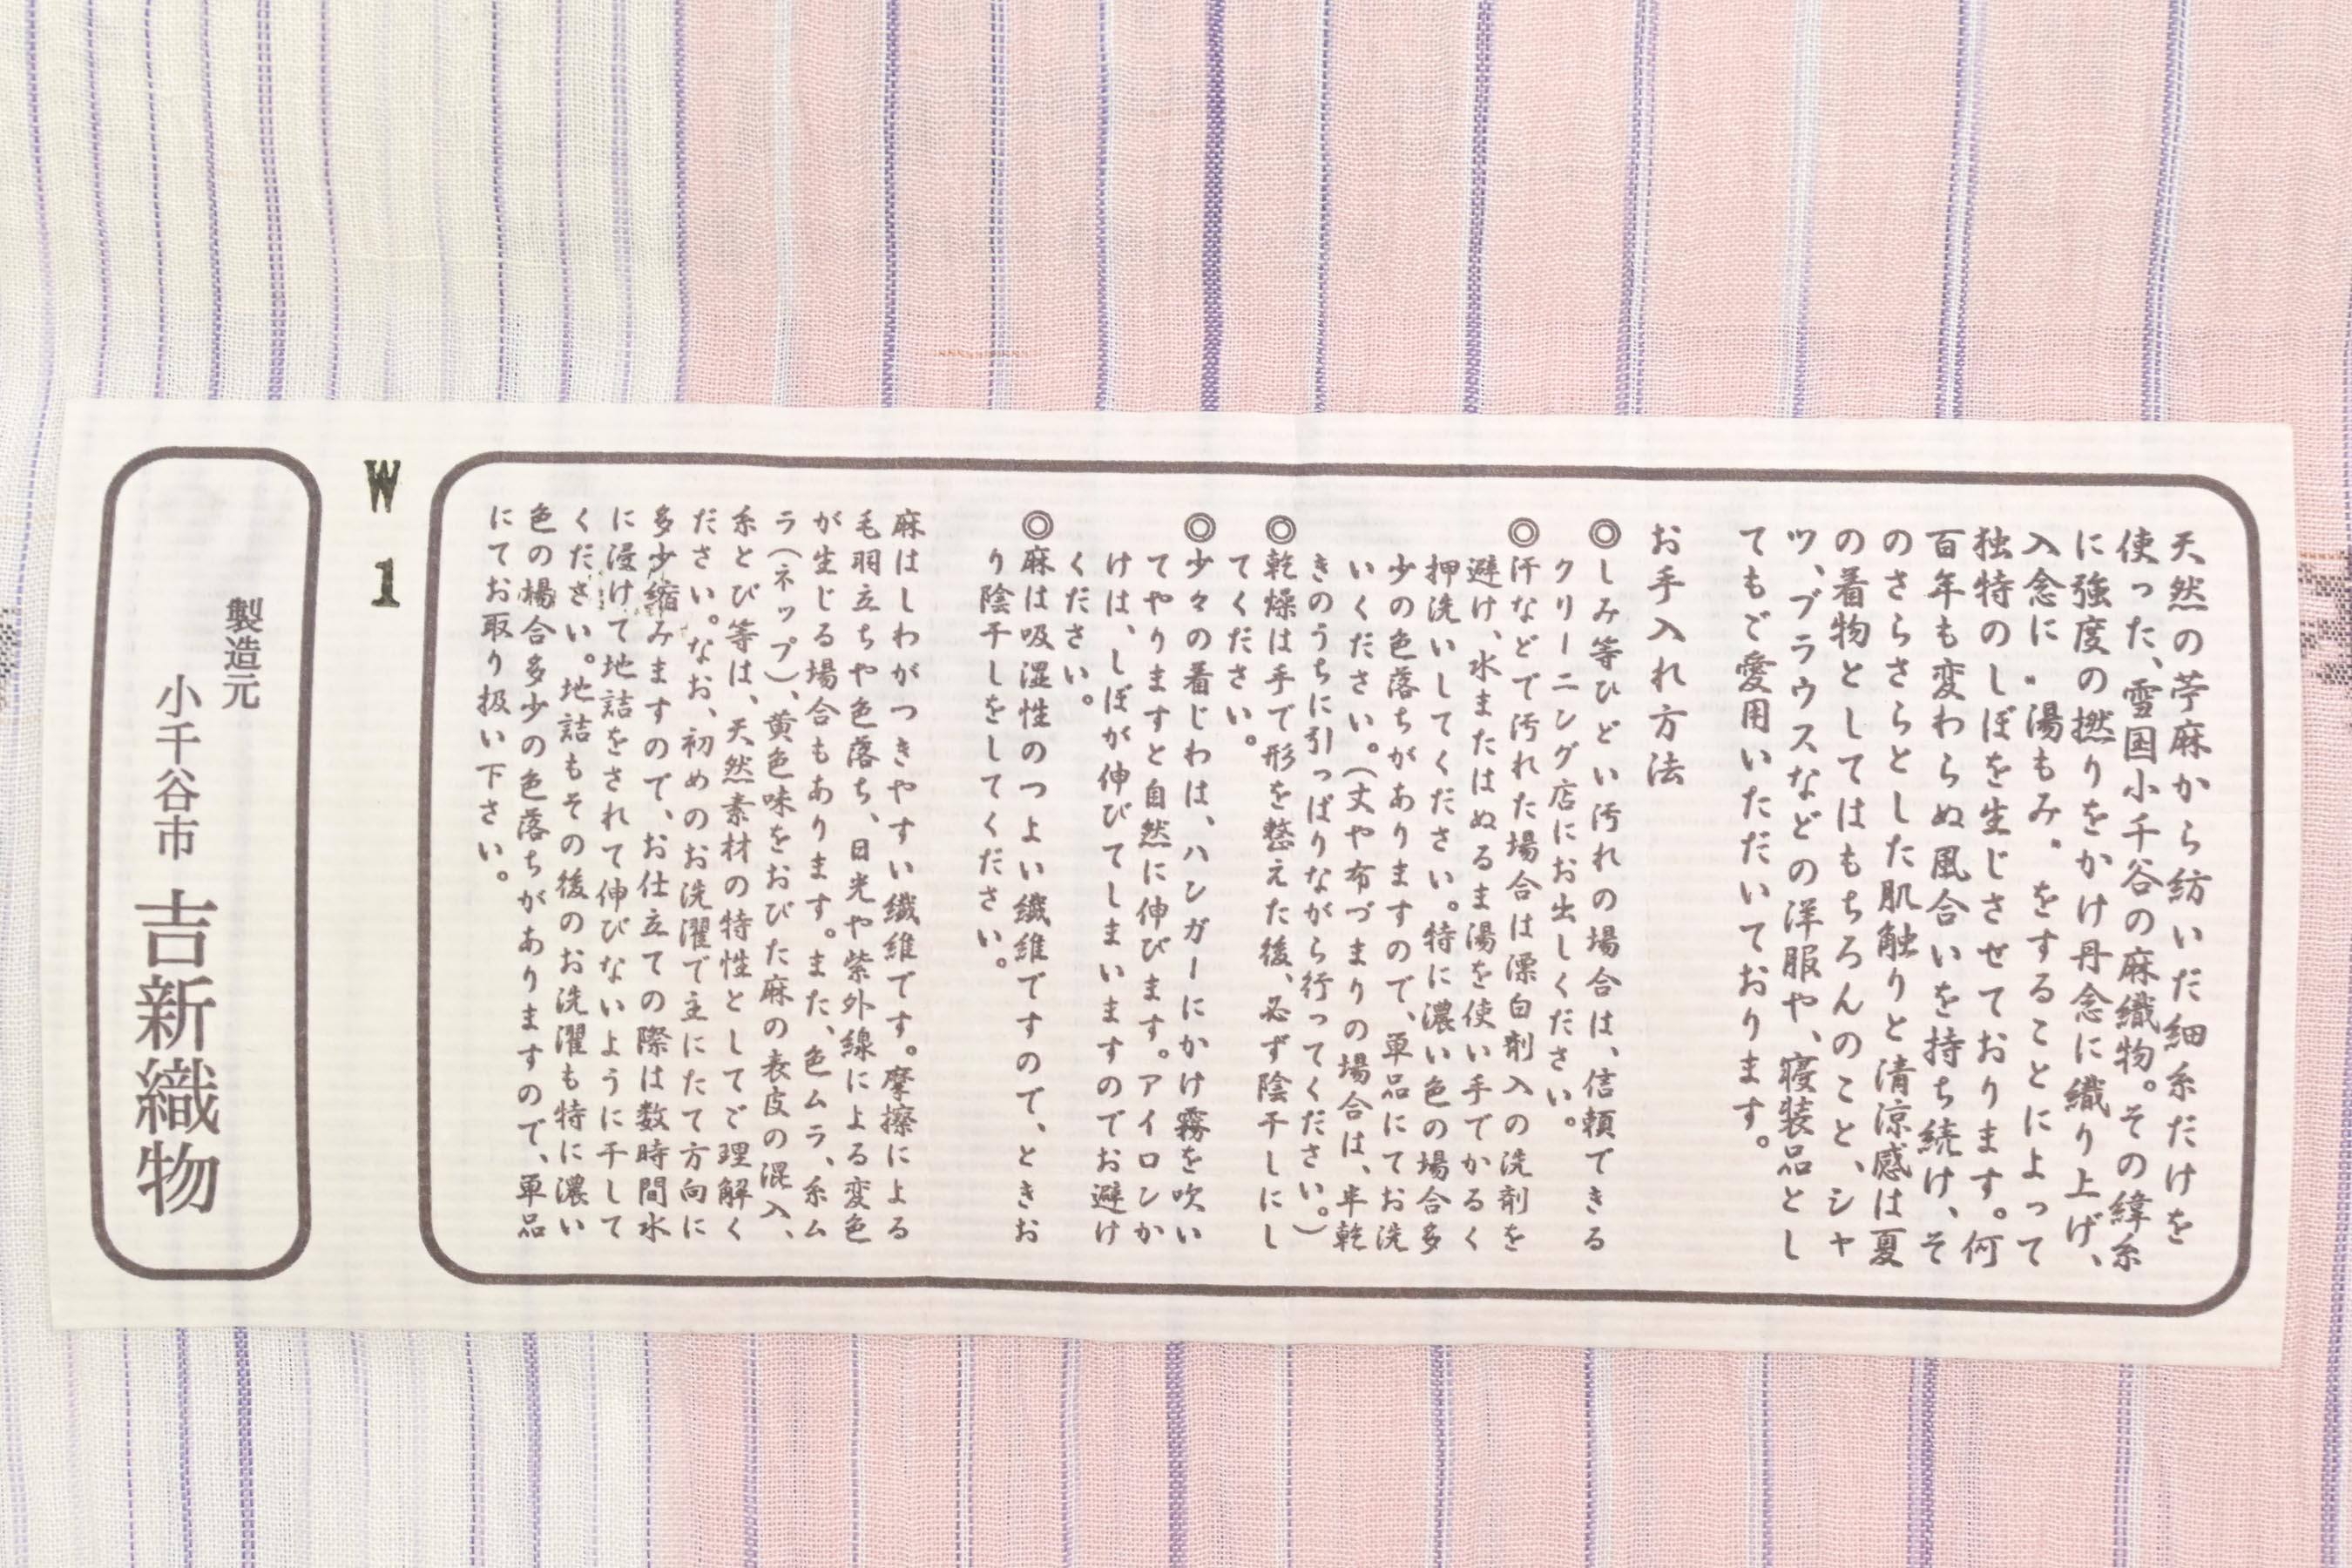 天然の苧麻から紡いだ細糸だけを
使った、雪国小千谷の麻織物。その緯糸
に強度の撚りをかけ丹念に織り上げ、
入念に〝湯もみ〟をすることによって
独特のしぼを生じさせております。何
百年も変わらぬ風合いを持ち続け、そ
のさらさらとした肌触りと清涼感は夏
の着物としてはもちろんのこと、シャ
ツ、ブラウスなどの洋服や、寝装品とし
てもご愛用いただいております。
お手入れ方法
◎しみ等ひどい汚れの場合は、信頼できる
クリーニング店にお出しください。
◎汗などで汚れた場合は漂白剤入の洗剤を
避け、水またはぬるま湯を使い手でかるく
押洗いしてください。特に濃い色の場合多
少の色落ちがありますので、単品にてお洗
いください。(丈や布づまりの場合は、半乾
きのうちに引っぱりながら行ってください。)
◎乾燥は手で形を整えた後、必ず陰干しにし
てください。
◎少々の着じわは、ハンガーにかけ霧を吹い
てやりますと自然に伸びます。アイロンか
けは、しぼが伸びてしまいますのでお避け
ください。
◎麻は吸湿性のつよい繊維ですので、ときお
り陰干しをしてください。
麻はしわがつきやすい繊維です。摩擦による
毛羽立ちや色落ち、日光や紫外線による変色
が生じる場合もあります。また、色ムラ、糸ム
ラ(ネップ)、黄色味をおびた麻の表皮の混入、
糸とび等は、天然素材の特性としてご理解く
ださい。なお、初めのお洗濯で主にたて方向に
多少縮みますので、お仕立ての際は数時間水
に浸けて地詰をされて伸びないように干して
ください。地詰もその後のお洗濯も特に濃い
色の場合多少の色落ちがありますので、単品
にてお取り扱い下さい。
W1
製造元
小千谷市 吉新織物